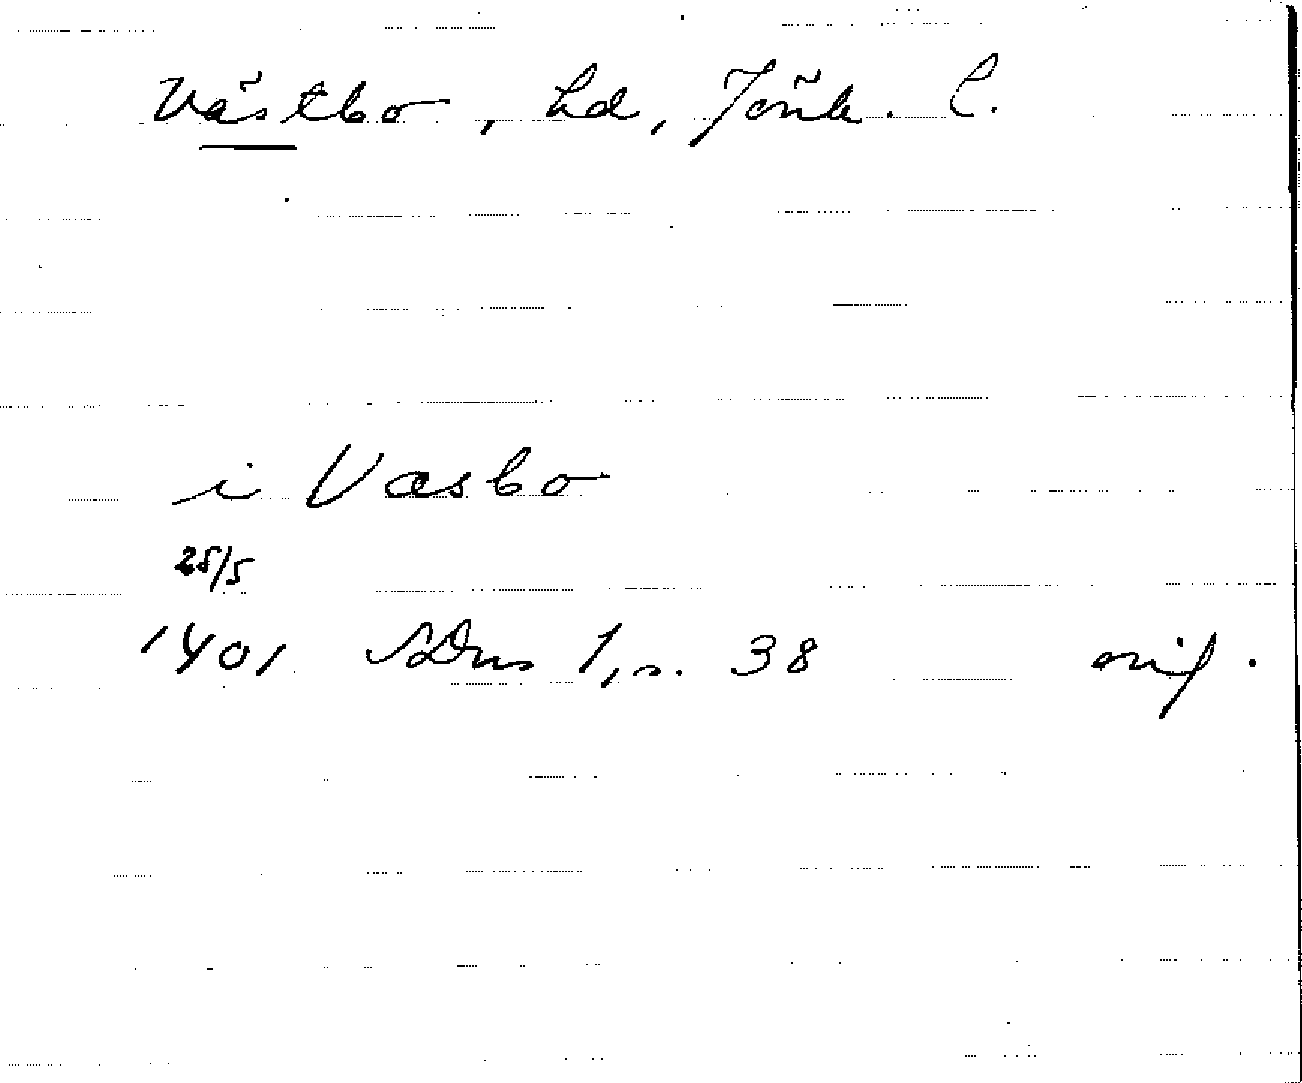 Västbo, hd, Jönk. l.
i Væsbo
25/5
1401 SDns 1, s. 38 orig.